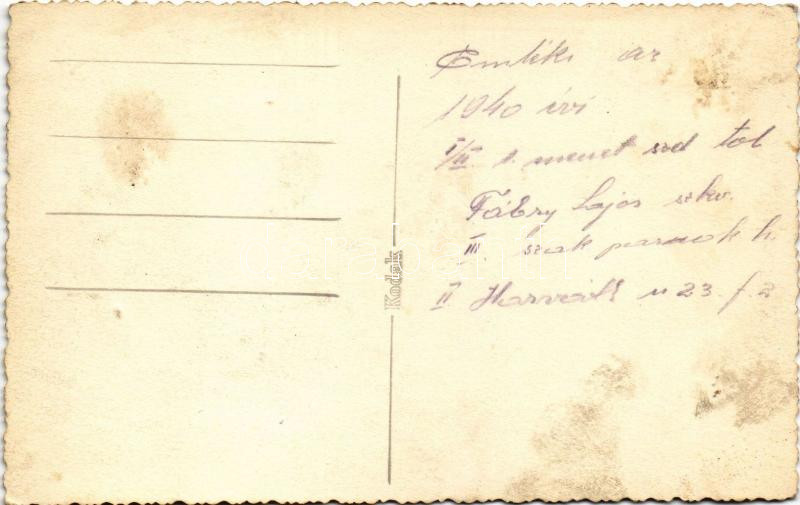 Emlék az
1940 évi
I/II. 1. menet szd tol
Fábry Lajos szkv.
III. szak parancsok h.
II Horváth u 23. f. 2
Kodak